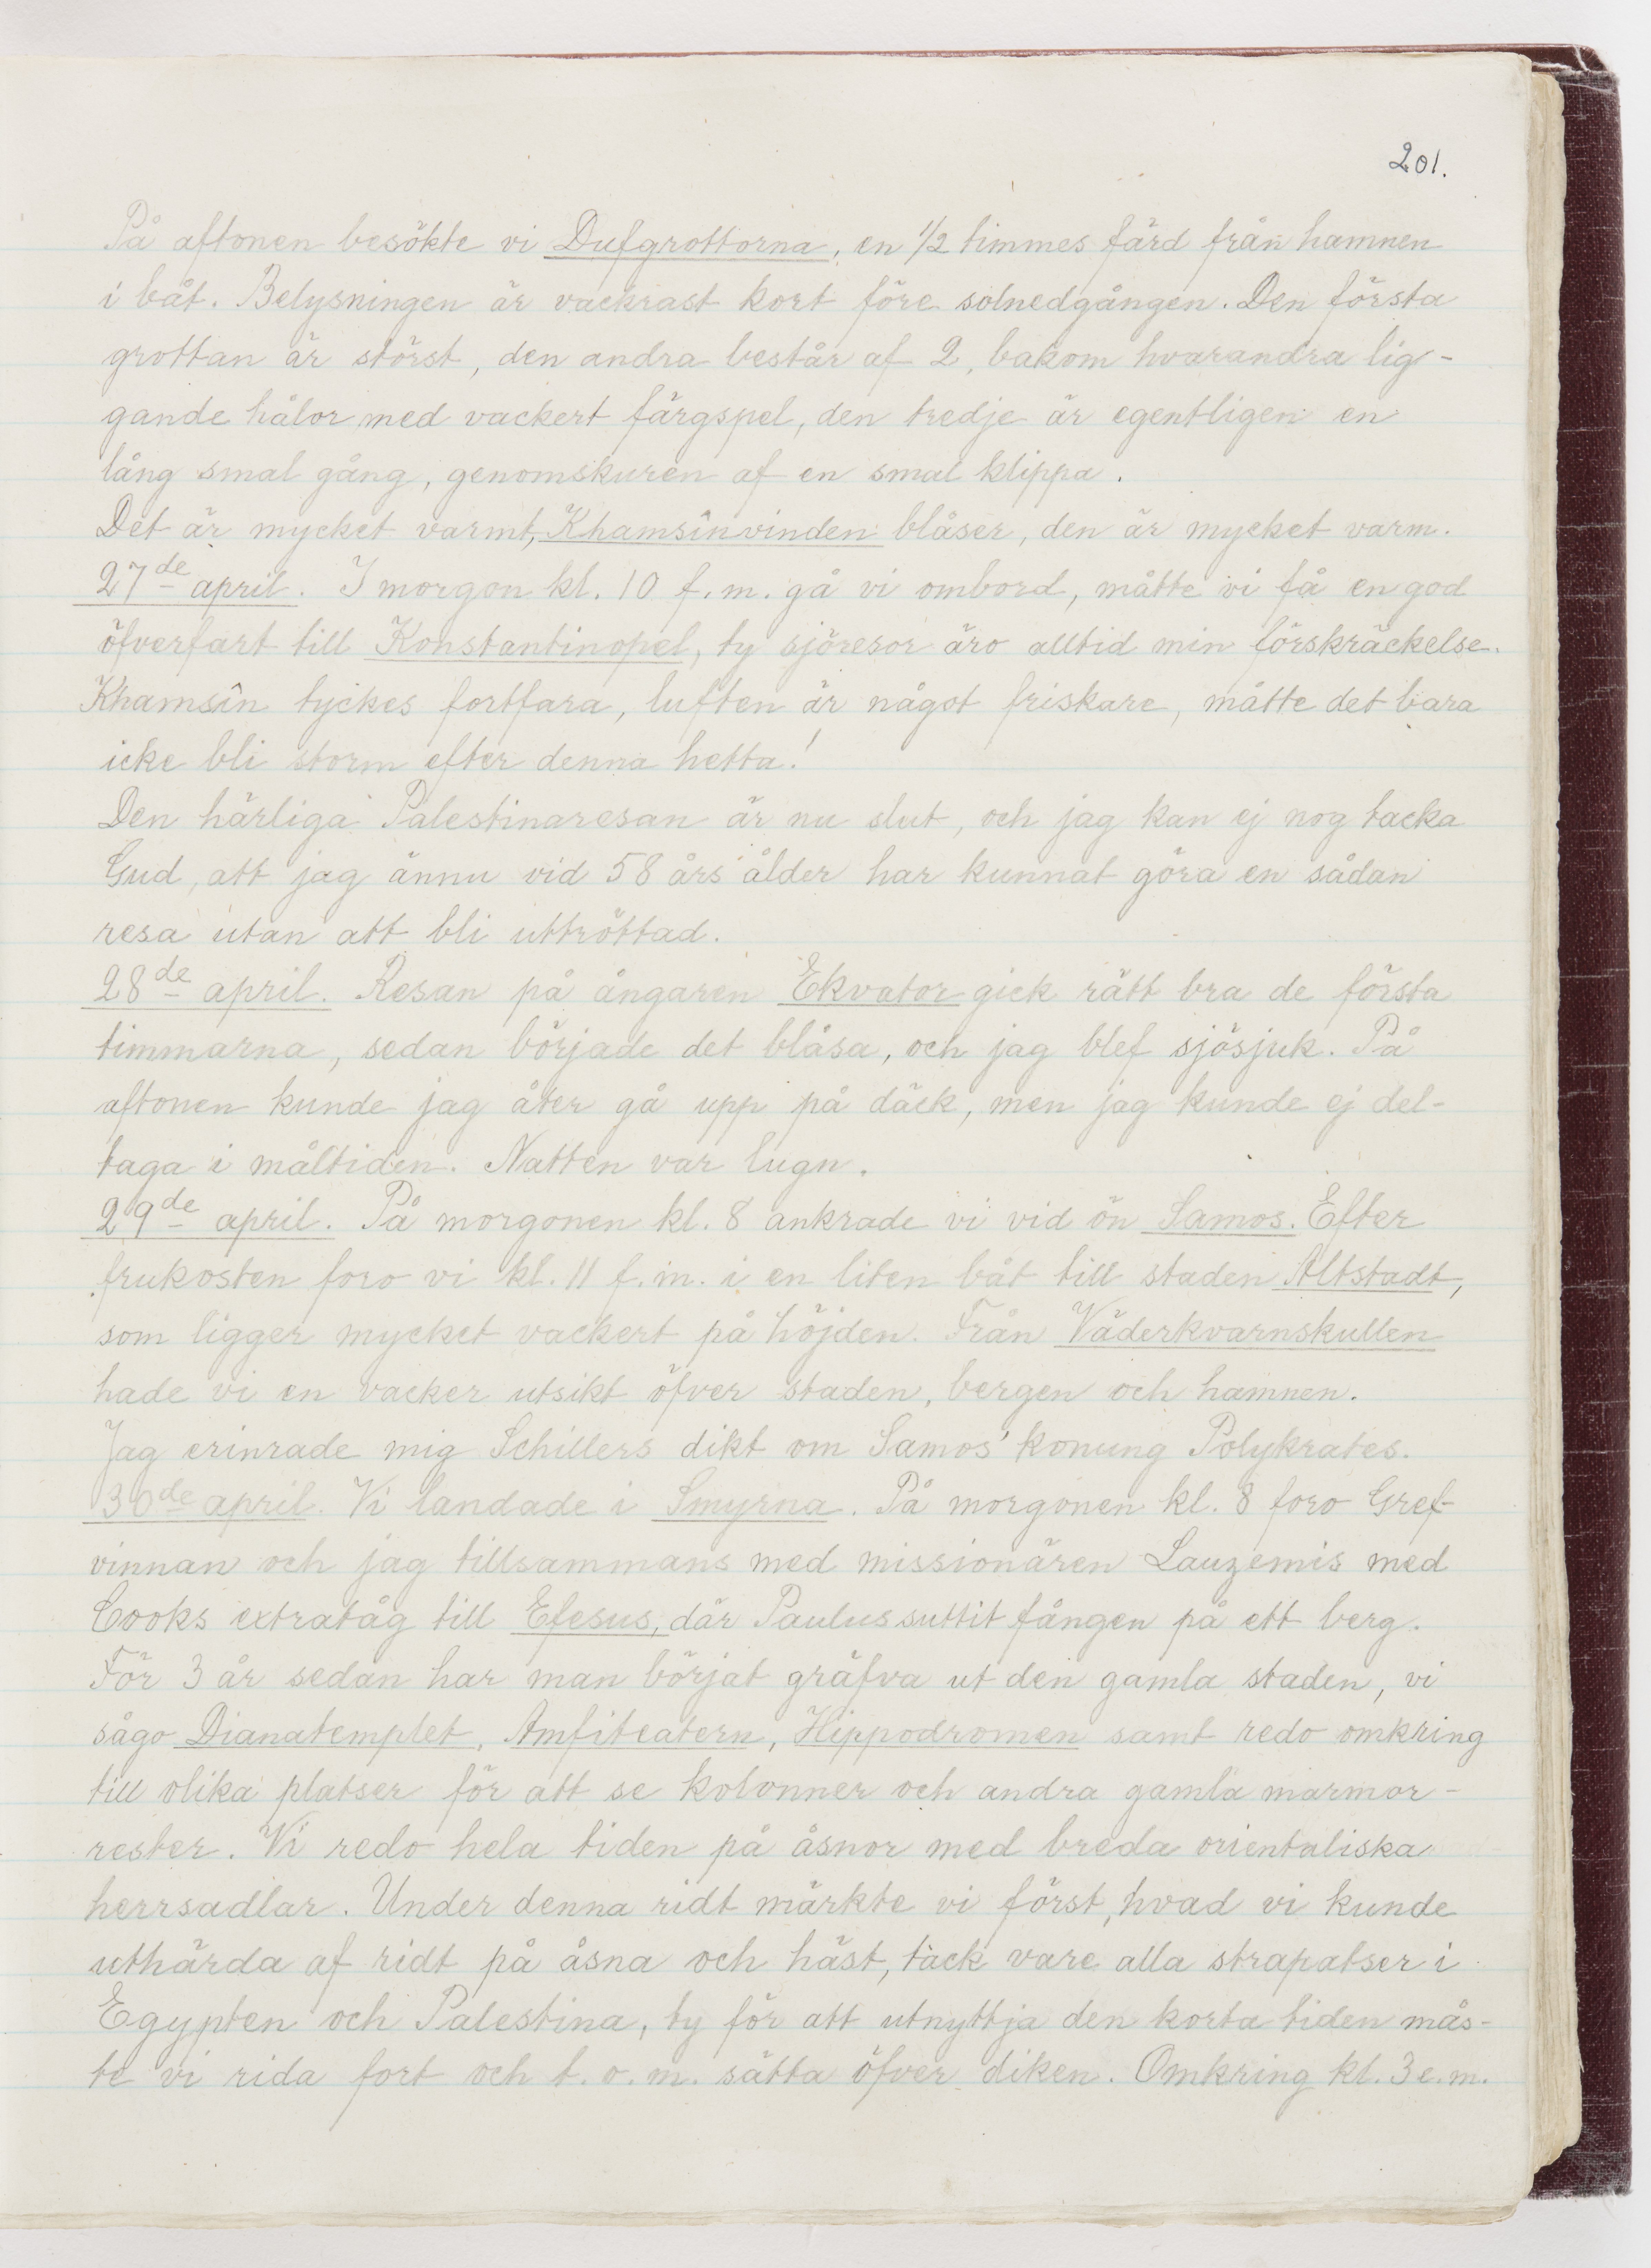 201.
På aftonen besökte vi Dufgrottorna, en ½ timmes färd från hamnen
i båt. Belysningen är vackrast kort före solnedgången. Den första
grottan är störst, den andra består af 2, bakom hvarandra lig-
gande hålor med vackert färgspel, den tredje är egentligen en
lång smal gång, genomskuren af en smal klippa.
Det är mycket varmt, Khamsînvinden blåser, den är mycket varm.
27de april. I morgon kl. 10 f.m. gå vi ombord, måtte vi få en god
öfverfart till Konstantinopel, ty sjöresor äro alltid min förskräckelse.
Khamsîn tyckes fortfara, luften är något friskare, måtte det bara
icke bli storm efter denna hetta!
Den härliga Palestinaresan är nu slut, och jag kan ej nog tacka
Gud, att jag ännu vid 58 års ålder har kunnat göra en sådan
resa utan att bli uttröttad.
28de april. Resan på ångaren Ekvator gick rätt bra de första
timmarna, sedan började det blåsa, och jag blef sjösjuk. På
aftonen kunde jag åter gå upp på däck, men jag kunde ej del-
taga i måltiden. Natten var lugn.
29de april. På morgonen kl. 8 ankrade vi vid ön Samos. Efter
frukosten foro vi kl. 11 f.m. i en liten båt till staden Altstadt,
som ligger mycket vackert på höjden. Från Väderkvarnskullen
hade vi en vacker utsikt öfver staden, bergen och hamnen.
Jag erinrade mig Schillers dikt om Samos' konung Polykrates.
30de april. Vi landade i Smyrna. På morgonen kl. 8 foro Gref-
vinnan och jag tillsammans med missionären Lauzemis med
Cooks extratåg till Efesus, där Paulus suttit fången på ett berg.
För 3 år sedan har man börjat gräfva ut den gamla staden, vi
sågo Dianatemplet, Amfiteatern, Hippodromen samt redo omkring
till olika platser för att se kolonner och andra gamla marmor-
rester. Vi redo hela tiden på åsnor med breda orientaliska
herrsadlar. Under denna ridt märkte vi först, hvad vi kunde
uthärda af ridt på åsna och häst, tack vare alla strapatser i
Egypten och Palestina, ty för att utnyttja den korta tiden mås-
te vi rida fort och t.o.m. sätta öfver diken. Omkring kl. 3 e.m.